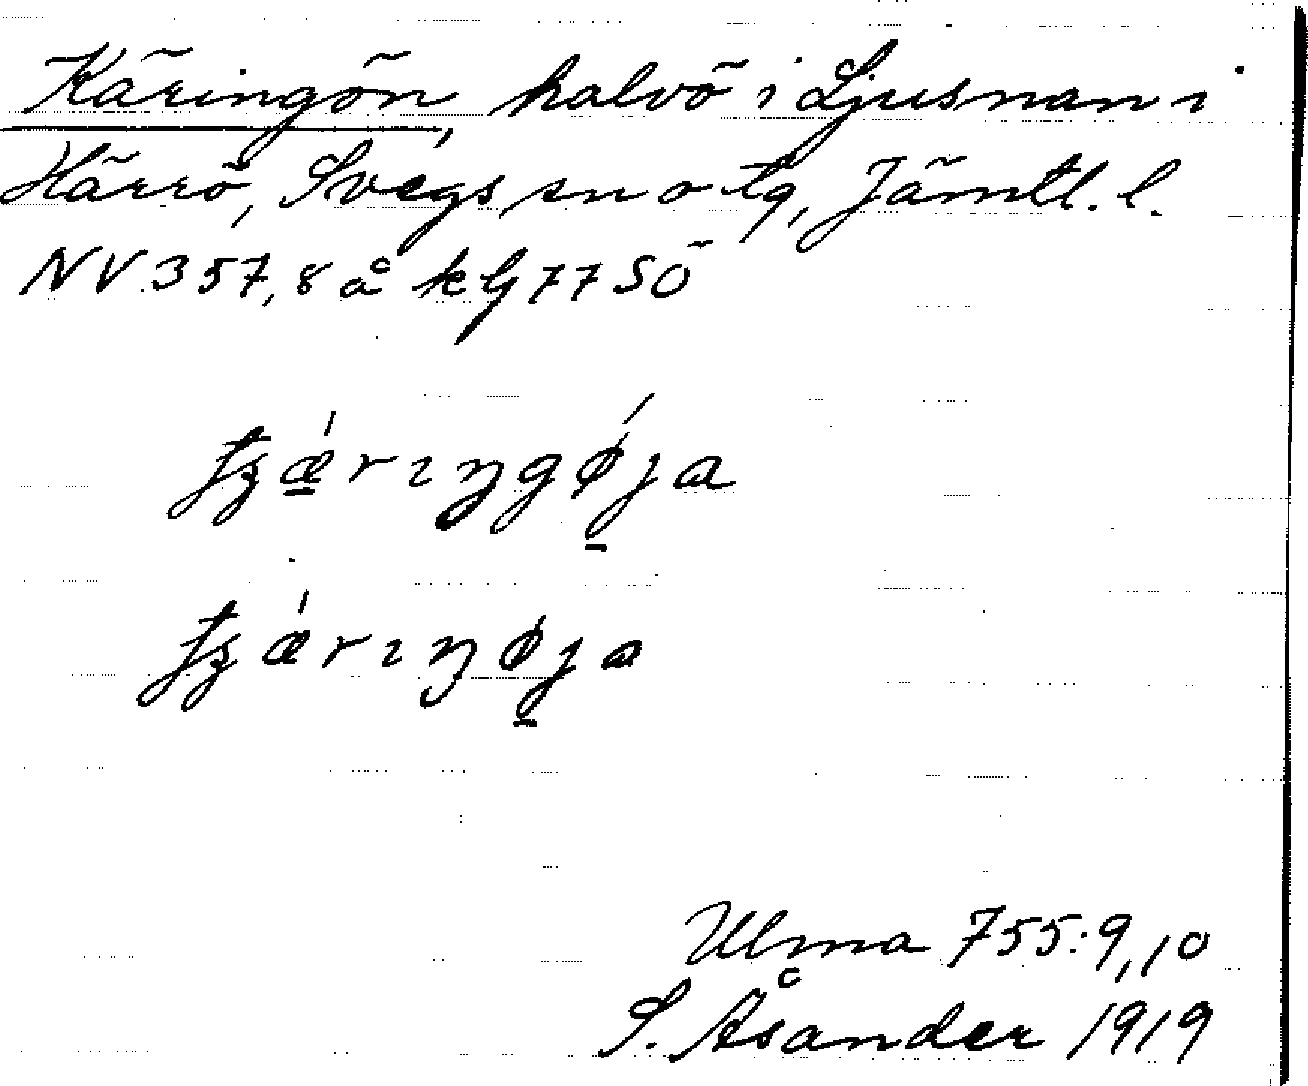 Käringön, halvö i Ljusnan i
Härrö, Svegs sn o tg, Jämtl. l.
NV 357,8 å kbl 77 SÖ
Ulma 755:9,10
S. Åsander 1919